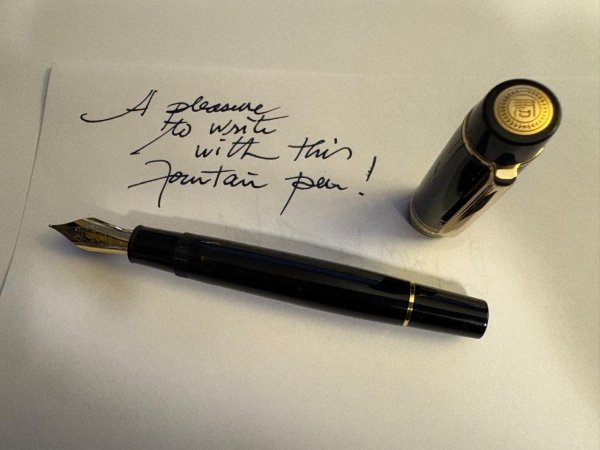 A pleasure
to write
with this
fountain pen!